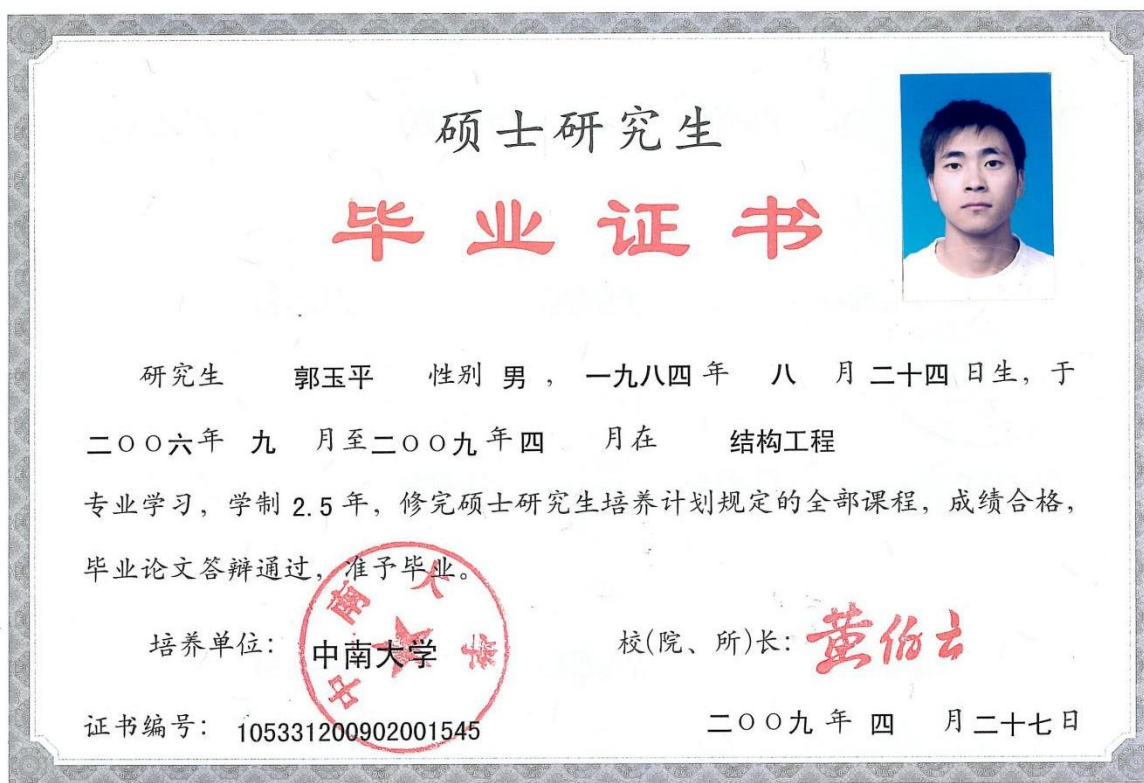 硕士研究生
毕业证书
研究生 郭玉平 性别 男 ， 一九八四 年 八 月 二十四 日生，于
二〇〇六年 九 月至二〇〇九年四 月在 结构工程
专业学习，学制 2.5 年，修完硕士研究生培养计划规定的全部课程，成绩合格，
毕业论文答辩通过，准予毕业。
培养单位： 中南大学 校(院、所)长：黄伯云
中南大学
证书编号： 105331200902001545 二〇〇九 年 四 月 二十七日